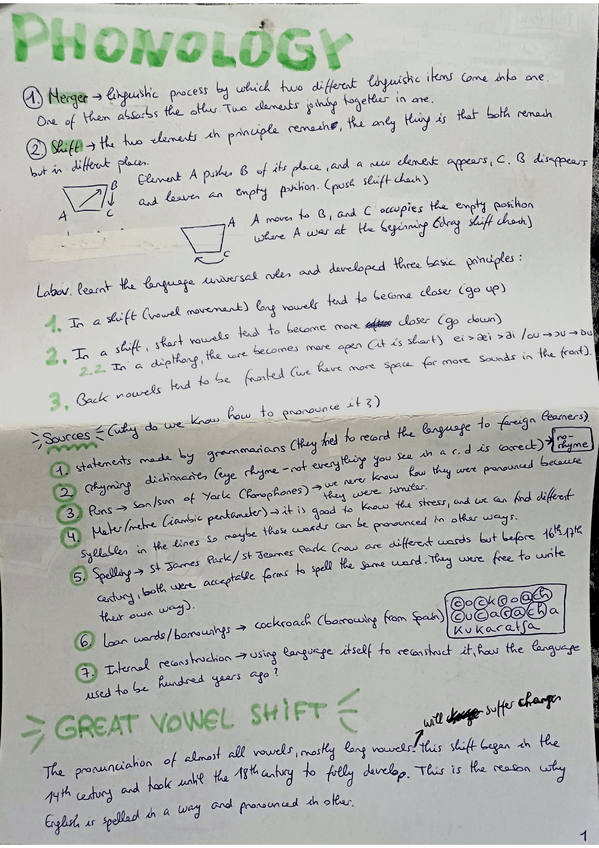 PHONOLOGY
1. Merger → linguistic process by which two different linguistic items come into one.
One of them absorbs the other. Two elements joining together in one.
2 Shift → the two elements in principle remain, the only thing is that both remain
but in different places.
Element A pushes B of its place, and a new element appears, C. B disappears
and leaves an empty position. (push shift chain)
B
A C
A moves to B, and C occupies the empty position
where A was at the beginning (drag shift chain)
A
C
Labov learnt the language universal rules and developed three basic principles:
1. In a shift (vowel movement) long vowels tend to become closer (go up)
2. In a shift, short vowels tend to become more closer (go down)
2.2. In a dipthong, the core becomes more open (it is short) ei > æi > ai / ou → ɔu → ɒu
3. Back vowels tend to be fronted (we have more space for more sounds in the front).
Sources (why do we know how to pronounce it?)
1. statements made by grammarians (they tried to record the language to foreign learners)
2. Rhyming dictionaries (eye rhyme - not everything you see in a r.d is correct) → no-rhyme
3 Puns → son/sun of York (homophones) → we know how they were pronounced because
they were similar.
4 Meter/metre (iambic pentameter) → it is good to know the stress, and we can find different
syllables in the lines so maybe those words can be pronounced in other ways.
5. Spelling → St James Park/St Jeames Park (now are different words but before 16th, 17th
century, both were acceptable forms to spell the same word. They were free to write
their own way).
6. Loan words/borrowings → cockroach (borrowing from Spain)
cockroach
cucaracha
Kukaratʃa
7. Internal reconstruction → using language itself to reconstruct it, how the language
used to be hundred years ago?
GREAT VOWEL SHIFT
will suffer changes
The pronunciation of almost all vowels, mostly long vowels. This shift began in the
14th century and took until the 18th century to fully develop. This is the reason why
English is spelled in a way and pronounced in other.
1